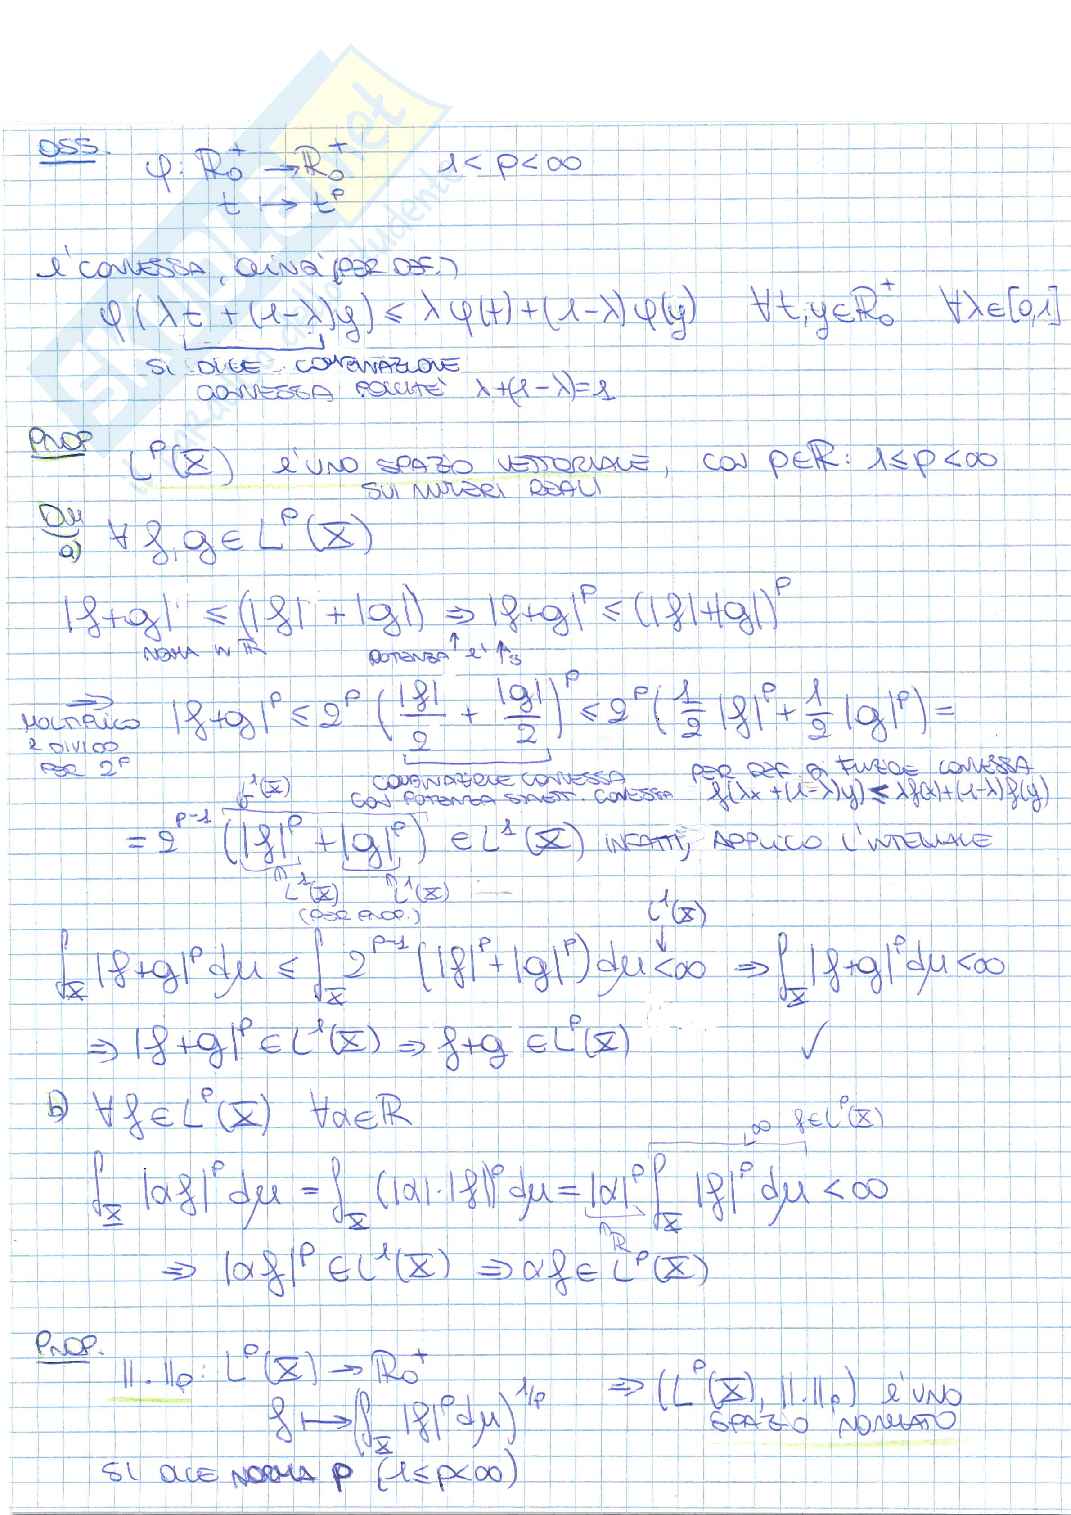 OSS. φ: ℝ₀⁺ → ℝ₀⁺ 1 < p < ∞
t → tᵖ
E' CONVESSA, QUINDI (PER DEF.)
φ(λt + (1-λ)y) ≤ λφ(t) + (1-λ)φ(y) ∀t,y∈ℝ₀⁺ ∀λ∈[0,1]
SI DICE COMBINAZIONE
CONVESSA POICHE' λ+(1-λ)=1
PROP Lᵖ(X) E' UNO SPAZIO VETTORIALE, CON p∈ℝ: 1≤p<∞
SUI NUMERI REALI
DIM
a) ∀ f,g ∈ Lᵖ(X)
|f+g| ≤ (|f| + |g|) ⇒ |f+g|ᵖ ≤ (|f|+|g|)ᵖ
NORMA IN ℝ POTENZA ↑ E' ↑
→ |f+g|ᵖ ≤ 2ᵖ (|f|/2 + |g|/2)ᵖ ≤ 2ᵖ (1/2 |f|ᵖ + 1/2 |g|ᵖ) =
MOLTIPLICO
E DIVIDO
PER 2ᵖ
COMBINAZIONE CONVESSA PER DEF DI FUNZIONE CONVESSA
CON POTENZA STRETT. CONVESSA f(λx + (1-λ)y) ≤ λf(x)+(1-λ)f(y)
L¹(X)
= 2ᵖ⁻¹ (|f|ᵖ + |g|ᵖ) ∈ L¹(X) INFATTI, APPLICO L'INTEGRALE
L¹(X) L¹(X)
(PER PROP.)
L¹(X)
∫_X |f+g|ᵖ dμ ≤ ∫_X 2ᵖ⁻¹ (|f|ᵖ+|g|ᵖ) dμ < ∞ ⇒ ∫_X |f+g|ᵖ dμ < ∞
⇒ |f+g|ᵖ ∈ L¹(X) ⇒ f+g ∈ Lᵖ(X) ✓
b) ∀f ∈ Lᵖ(X) ∀α∈ℝ
∞ f∈Lᵖ(X)
∫_X |αf|ᵖ dμ = ∫_X (|α|·|f|)ᵖ dμ = |α|ᵖ ∫_X |f|ᵖ dμ < ∞
ℝ
⇒ |αf|ᵖ ∈ L¹(X) ⇒ αf ∈ Lᵖ(X)
PROP.
||.||ₚ: Lᵖ(X) → ℝ₀⁺ ⇒ (Lᵖ(X), ||.||ₚ) E' UNO
f ↦ (∫_X |f|ᵖ dμ)^1/p SPAZIO NORMATO
SI DICE NORMA p (1≤p<∞)